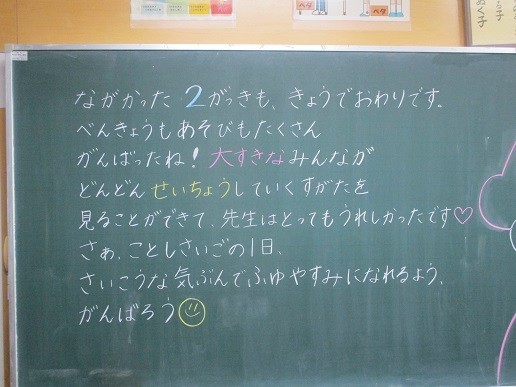 ながかった 2がっきも、きょうでおわりです。
べんきょうもあそびもたくさん
がんばったね!大すきなみんなが
どんどんせいちょうしていくすがたを
見ることができて、先生はとってもうれしかったです♡
さぁ、ことしさいごの1日、
さいこうな気ぶんでふゆやすみになれるよう、
がんばろう☺